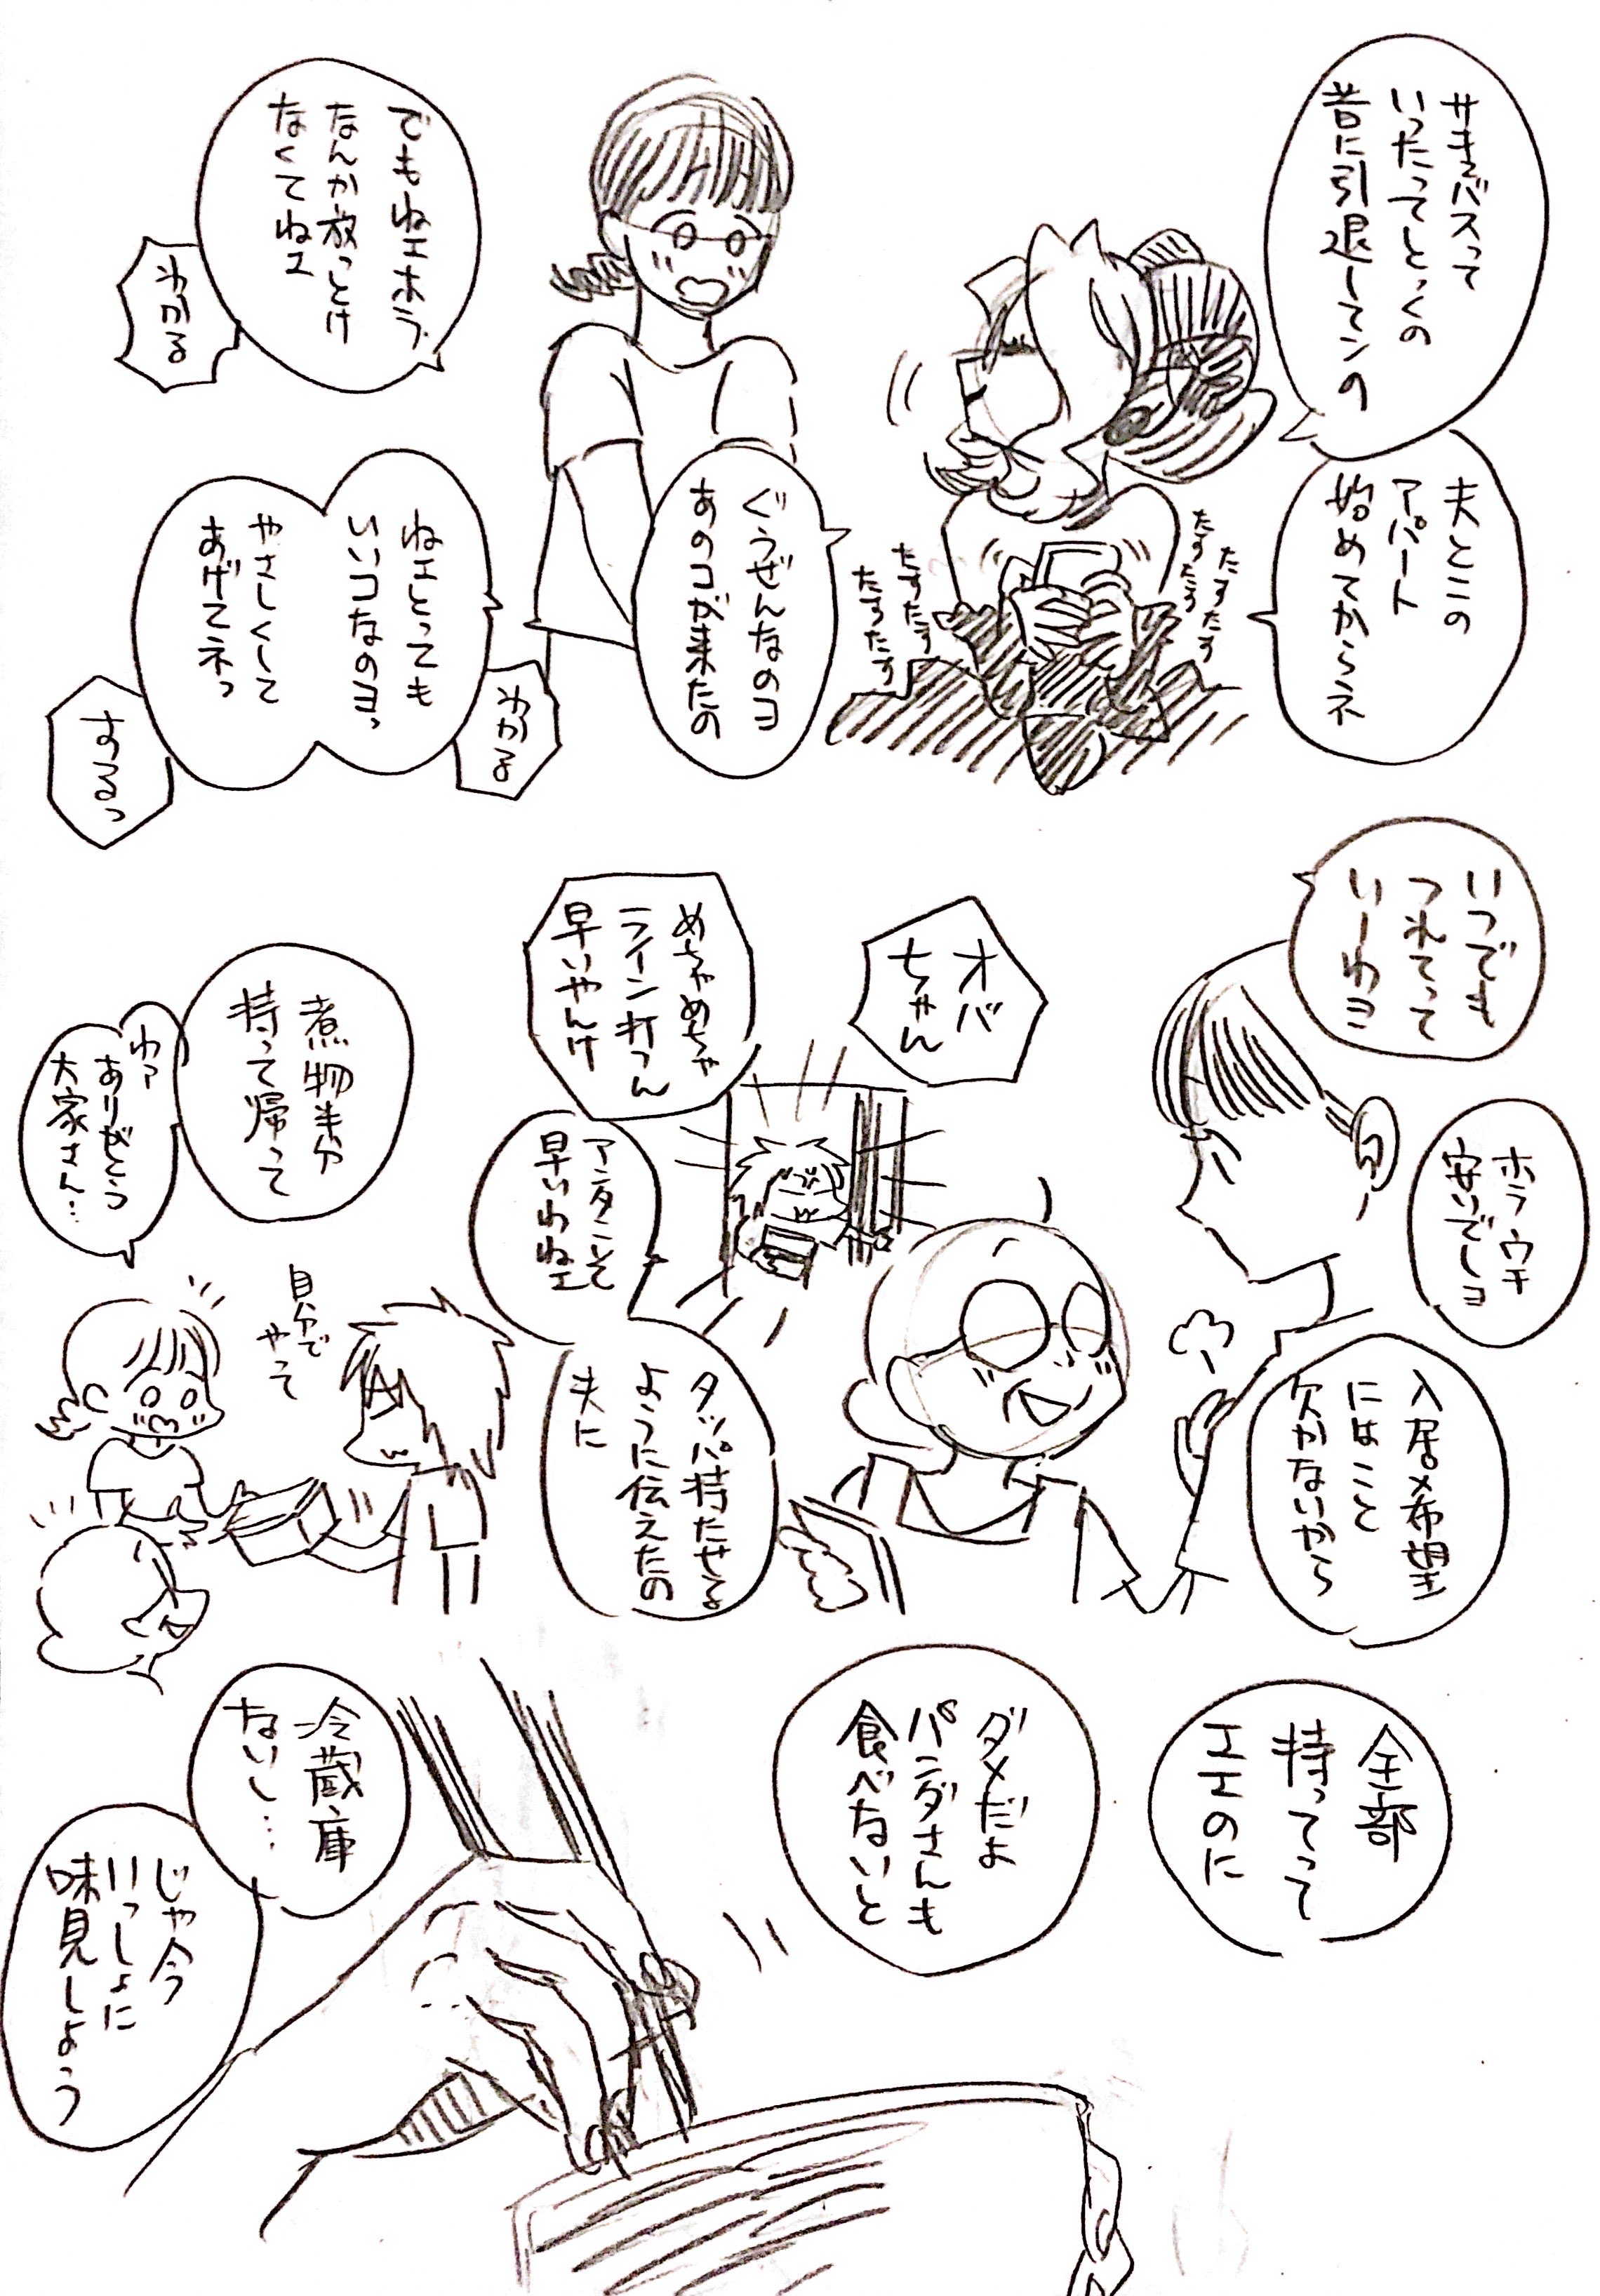 サキュバスって
いったってとっくの
昔に引退してンの
夫とこの
アパート
始めてからネ
たすたす
たすたす
たすたす
たすたす
ぐうぜんなのヨ
あのコが来たの
でもねエホラ
なんか放っとけ
なくてねエ
わかる
ねエとっても
いいコなのヨっ
やさしくして
あげてネっ
わかる
するっ
いつでも
つれてって
いーわヨ
ホラウチ
安いでしョ
入居〆希望
にはこと
欠かないから
オバ
ちゃん
めちゃめちゃ
ライン打つん
早いやんけ
アンタこそ
早いわねエ
タッパ持たせる
ように伝えたの
夫に
煮物半分
持って帰って
わァ
ありがとう
大家さん…
自分で
やって
全部
持ってって
エエのに
ダメだよ
パンダさんも
食べないと
冷蔵庫
ないし…
じゃ今
いっしょに
味見しよう